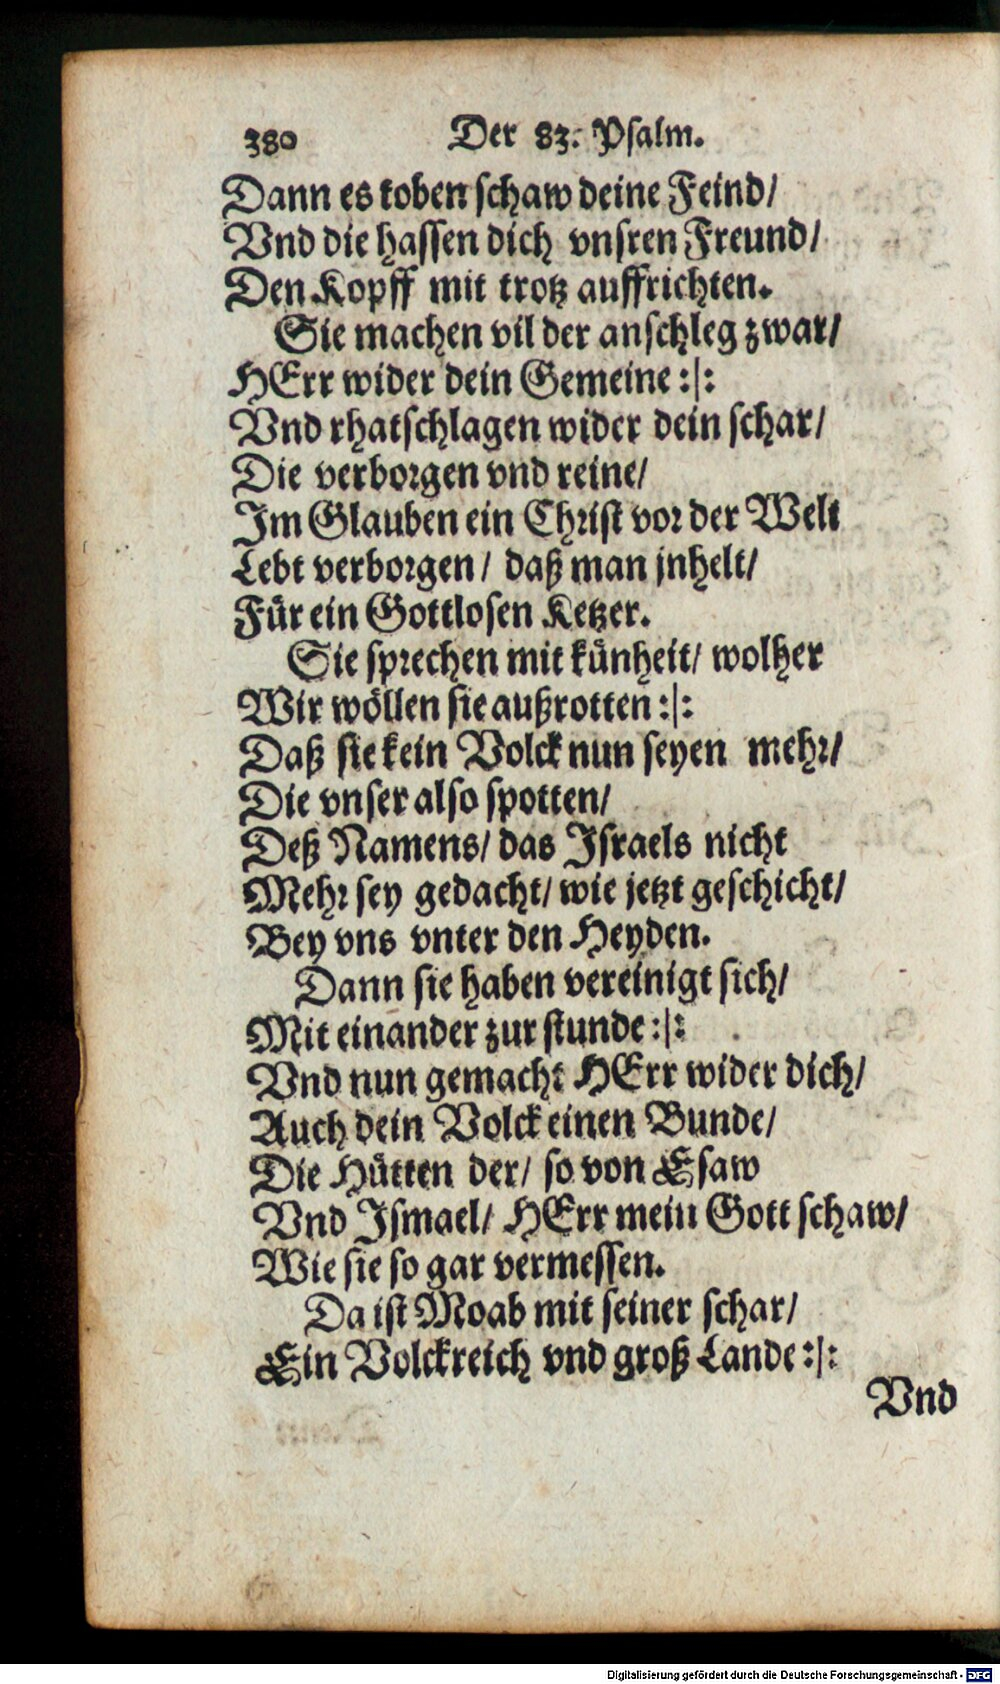 380 Der 83. Psalm.
Dann es toben schaw deine Feind/
Vnd die hassen dich vnsren Freund/
Den Kopff mit trotz auffrichten.
Sie machen vil der anschleg zwar/
HErr wider dein Gemeine :|:
Vnd rhatschlagen wider dein schar/
Die verborgen vnd reine/
Im Glauben ein Christ vor der Welt
Lebt verborgen/ daß man jnhelt/
Für ein Gottlosen Ketzer.
Sie sprechen mit künheit/ wolher
Wir wöllen sie außrotten :|:
Daß sie kein Volck nun seyen mehr/
Die vnser also spotten/
Deß Namens/ das Israels nicht
Mehr sey gedacht/ wie jetzt geschicht/
Bey vns vnter den Heyden.
Dann sie haben vereinigt sich/
Mit einander zur stunde :|:
Vnd nun gemacht HErr wider dich/
Auch dein Volck einen Bunde/
Die Hütten der/ so von Esaw
Vnd Ismael/ HErr mein Gott schaw/
Wie sie so gar vermessen.
Da ist Moab mit seiner schar/
Ein Volckreich vnd groß Lande :|:
Vnd
Digitalisierung gefördert durch die Deutsche Forschungsgemeinschaft - DFG